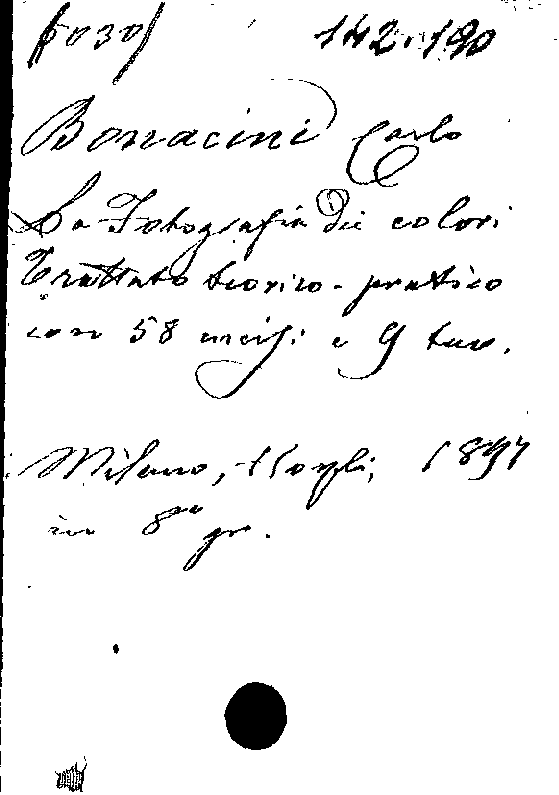 142.190
Bonacini Carlo
La Fotografia dei colori
Trattato teorico-pratico
con 58 incisi. e 9 tav.
Milano, Hoepli, 1897
in 8º gr.